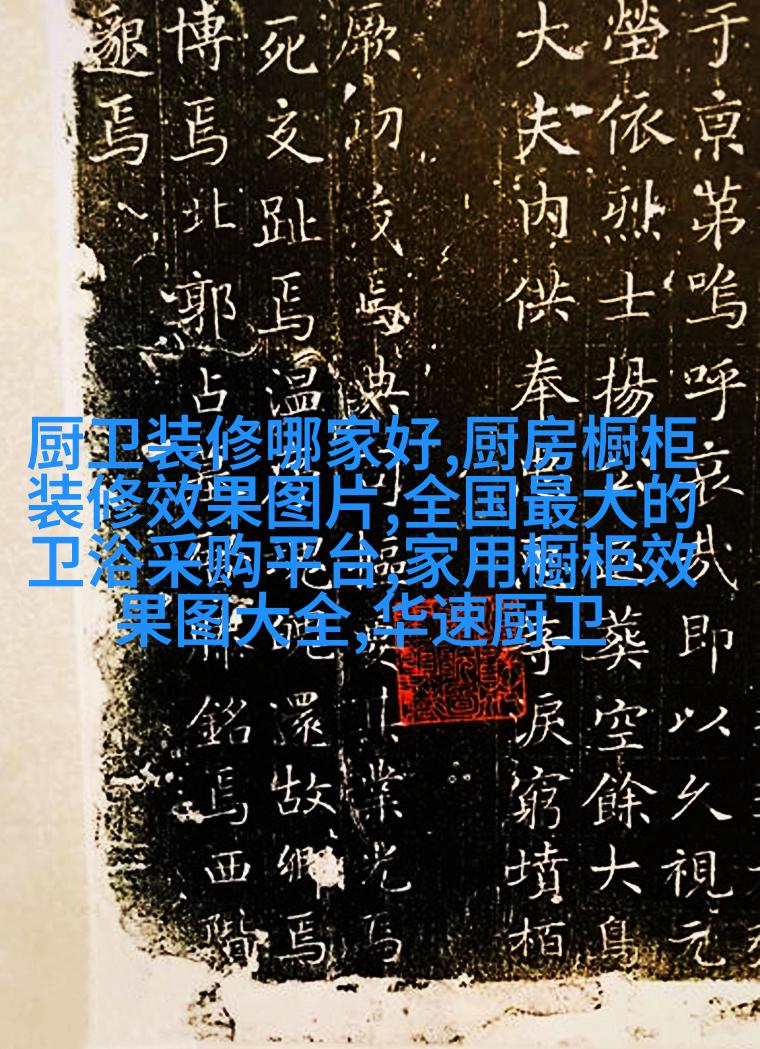 厨卫装修哪家好,厨房橱柜
装修效果图片,全国最大的
卫浴采购平台,家用橱柜效
果图大全,华速厨卫
于京第嗚呼哀哉即以久視元
瑩依烈士揚葬空餘大鳥
大夫内供奉淚窮墳栢
厥功茂焉典司樞業光焉
死交趾焉温還故鄉焉
博焉北郭占銘焉西階
邈焉